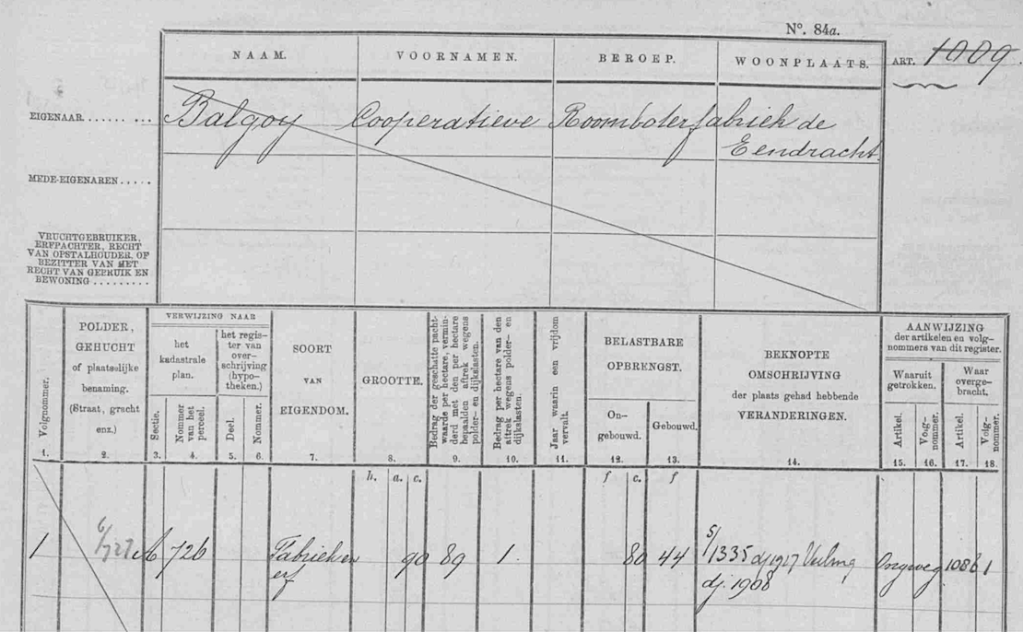 Nº. 84a.
NAAM. VOORNAMEN. BEROEP. WOONPLAATS. ART. 1009.
EIGENAAR......... Balgoy Cooperatieve Roomboterfabriek de
Eendracht
MEDE-EIGENAREN.....
VRUCHTGEBRUIKER,
ERFPACHTER, RECHT
VAN OPSTALHOUDER, OF
BEZITTER VAN HET
RECHT VAN GEBRUIK EN
BEWONING.........
Volgnommer.
1.
POLDER,
GEHUCHT
of plaatselijke
benaming.
(Straat, gracht
enz.)
2.
VERWIJZING NAAR
het
kadastrale
plan.
Sectie.
3.
Nommer
van het
perceel.
4.
het regis-
ter van
over-
schrijving
(hypo-
theken.)
Deel.
5.
Nommer.
6.
SOORT
VAN
EIGENDOM.
7.
GROOTTE.
8.
Bedrag der geschatte pacht-
waarde per hectare, vermin-
derd met den per hectare
bepaalden aftrek wegens
polder- en dijkslasten.
9.
Bedrag per hectare van den
aftrek wegens polder- en
dijkslasten.
10.
Jaar waarin een vrijdom
vervalt.
11.
BELASTBARE
OPBRENGST.
On-
gebouwd.
12.
Gebouwd.
13.
BEKNOPTE
OMSCHRIJVING
der plaats gehad hebbende
VERANDERINGEN.
14.
AANWIJZING
der artikelen en volg-
nommers van dit register.
Waaruit
getrokken.
Artikel.
15.
Volg-
nommer.
16.
Waar
overge-
bracht.
Artikel.
17.
Volg-
nommer.
18.
h. a. c. f c. f
1 6/727 A 726 Fabriek en 90 89 1. 80 44 S/1335 dj 1917 Veiling 1086 1
erf dj. 1908